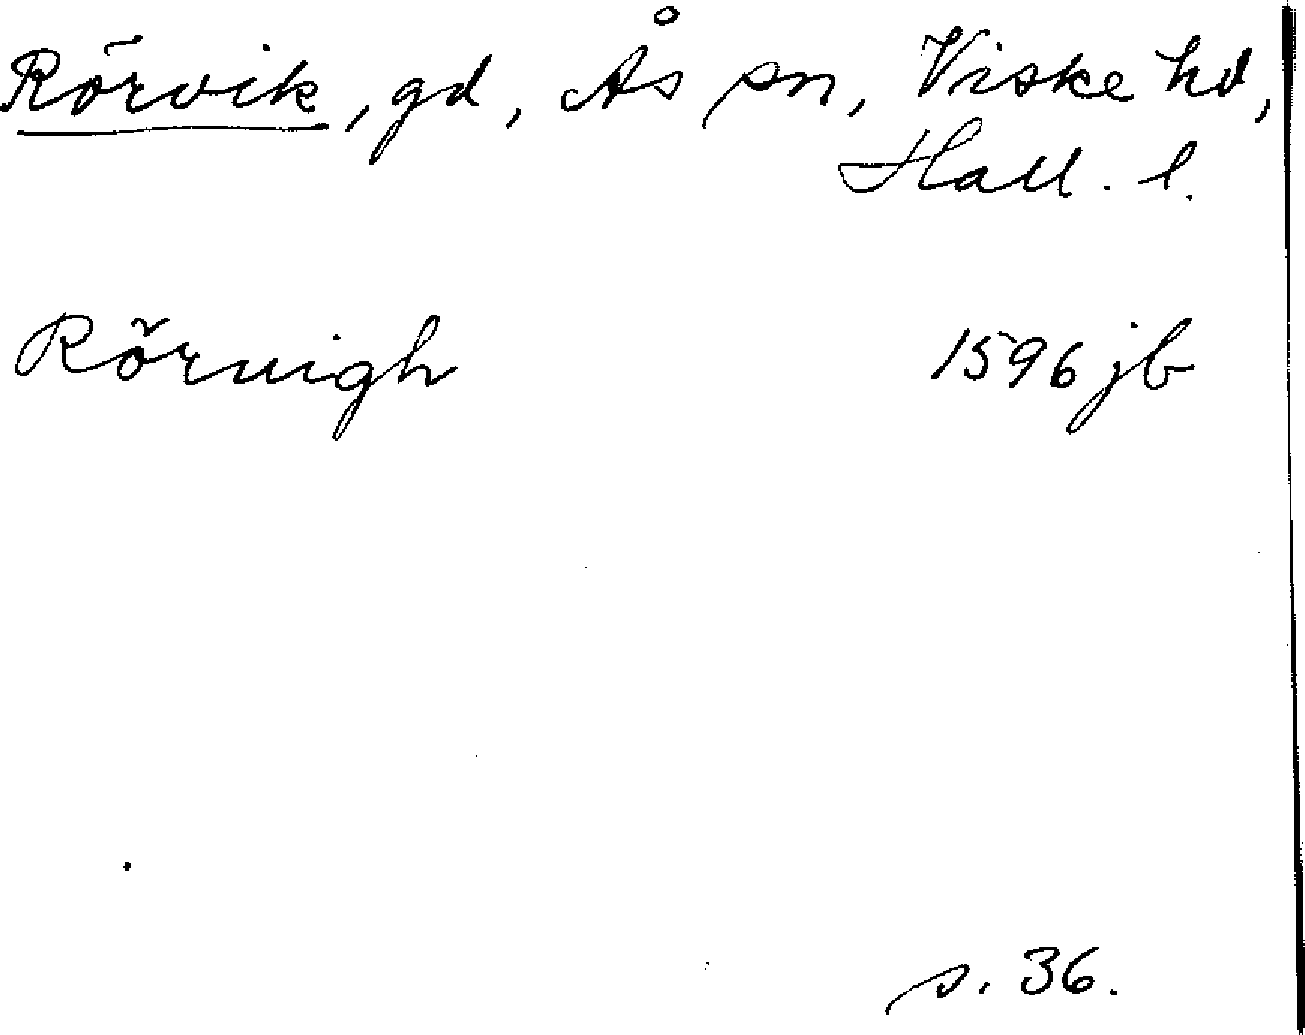 Rörvik, gd, Ås sn, Viske hd,
Hall. l.
Röruigh 1596 jb
s. 36.